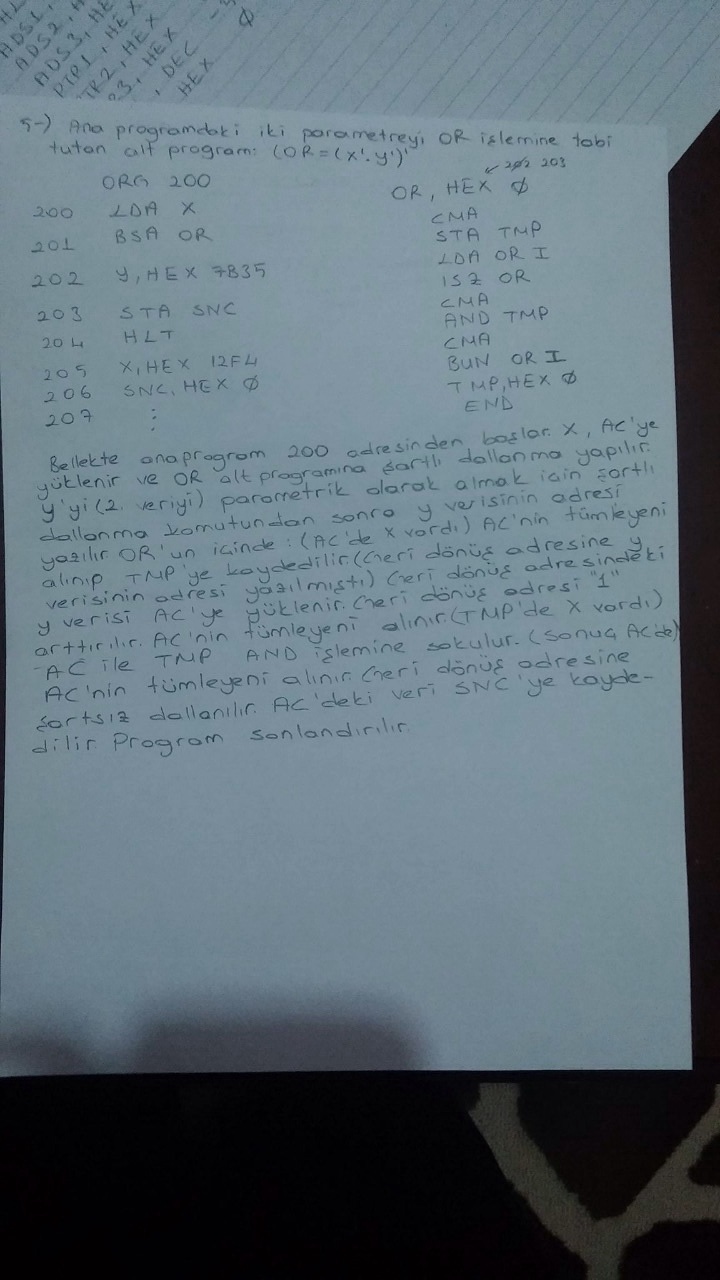 ADS1,
ADS2, H
ADS3, HE
PTR1, HEX
TR2, HEX
3, HEX
, DEC
HEX
Ø
5-) Ana programdaki iki parametreyi OR işlemine tabi
tutan alt program: (OR=(x'.y')'
ORG 200
200 LDA X
201 BSA OR
202 Y, HEX 7B35
203 STA SNC
204 HLT
205 X, HEX 12F4
206 SNC, HEX Ø
207 ⋮
202 203
OR, HEX Ø
CMA
STA TMP
LDA OR I
ISZ OR
CMA
AND TMP
CMA
BUN OR I
TMP, HEX Ø
END
Bellekte anaprogram 200 adresinden başlar. X, AC'ye
yüklenir ve OR alt programına şartlı dallanma yapılır.
y'yi (2. veriyi) parametrik olarak almak için şartlı
dallanma komutundan sonra y verisinin adresi
yazılır OR'un içinde: (AC'de x vardı) AC'nin tümleyeni
alınıp TMP'ye kaydedilir (Geri dönüş adresine y
verisinin adresi yazılmıştı) Geri dönüş adresindeki
y verisi AC'ye yüklenir. Geri dönüş adresi "1"
arttırılır. AC'nin tümleyeni alınır. (TMP'de X vardı)
AC ile TMP AND işlemine sokulur. (Sonuç AC'de)
AC'nin tümleyeni alınır. Geri dönüş adresine
şartsız dallanılır. AC'deki veri SNC'ye kayde-
dilir. Program sonlandırılır.